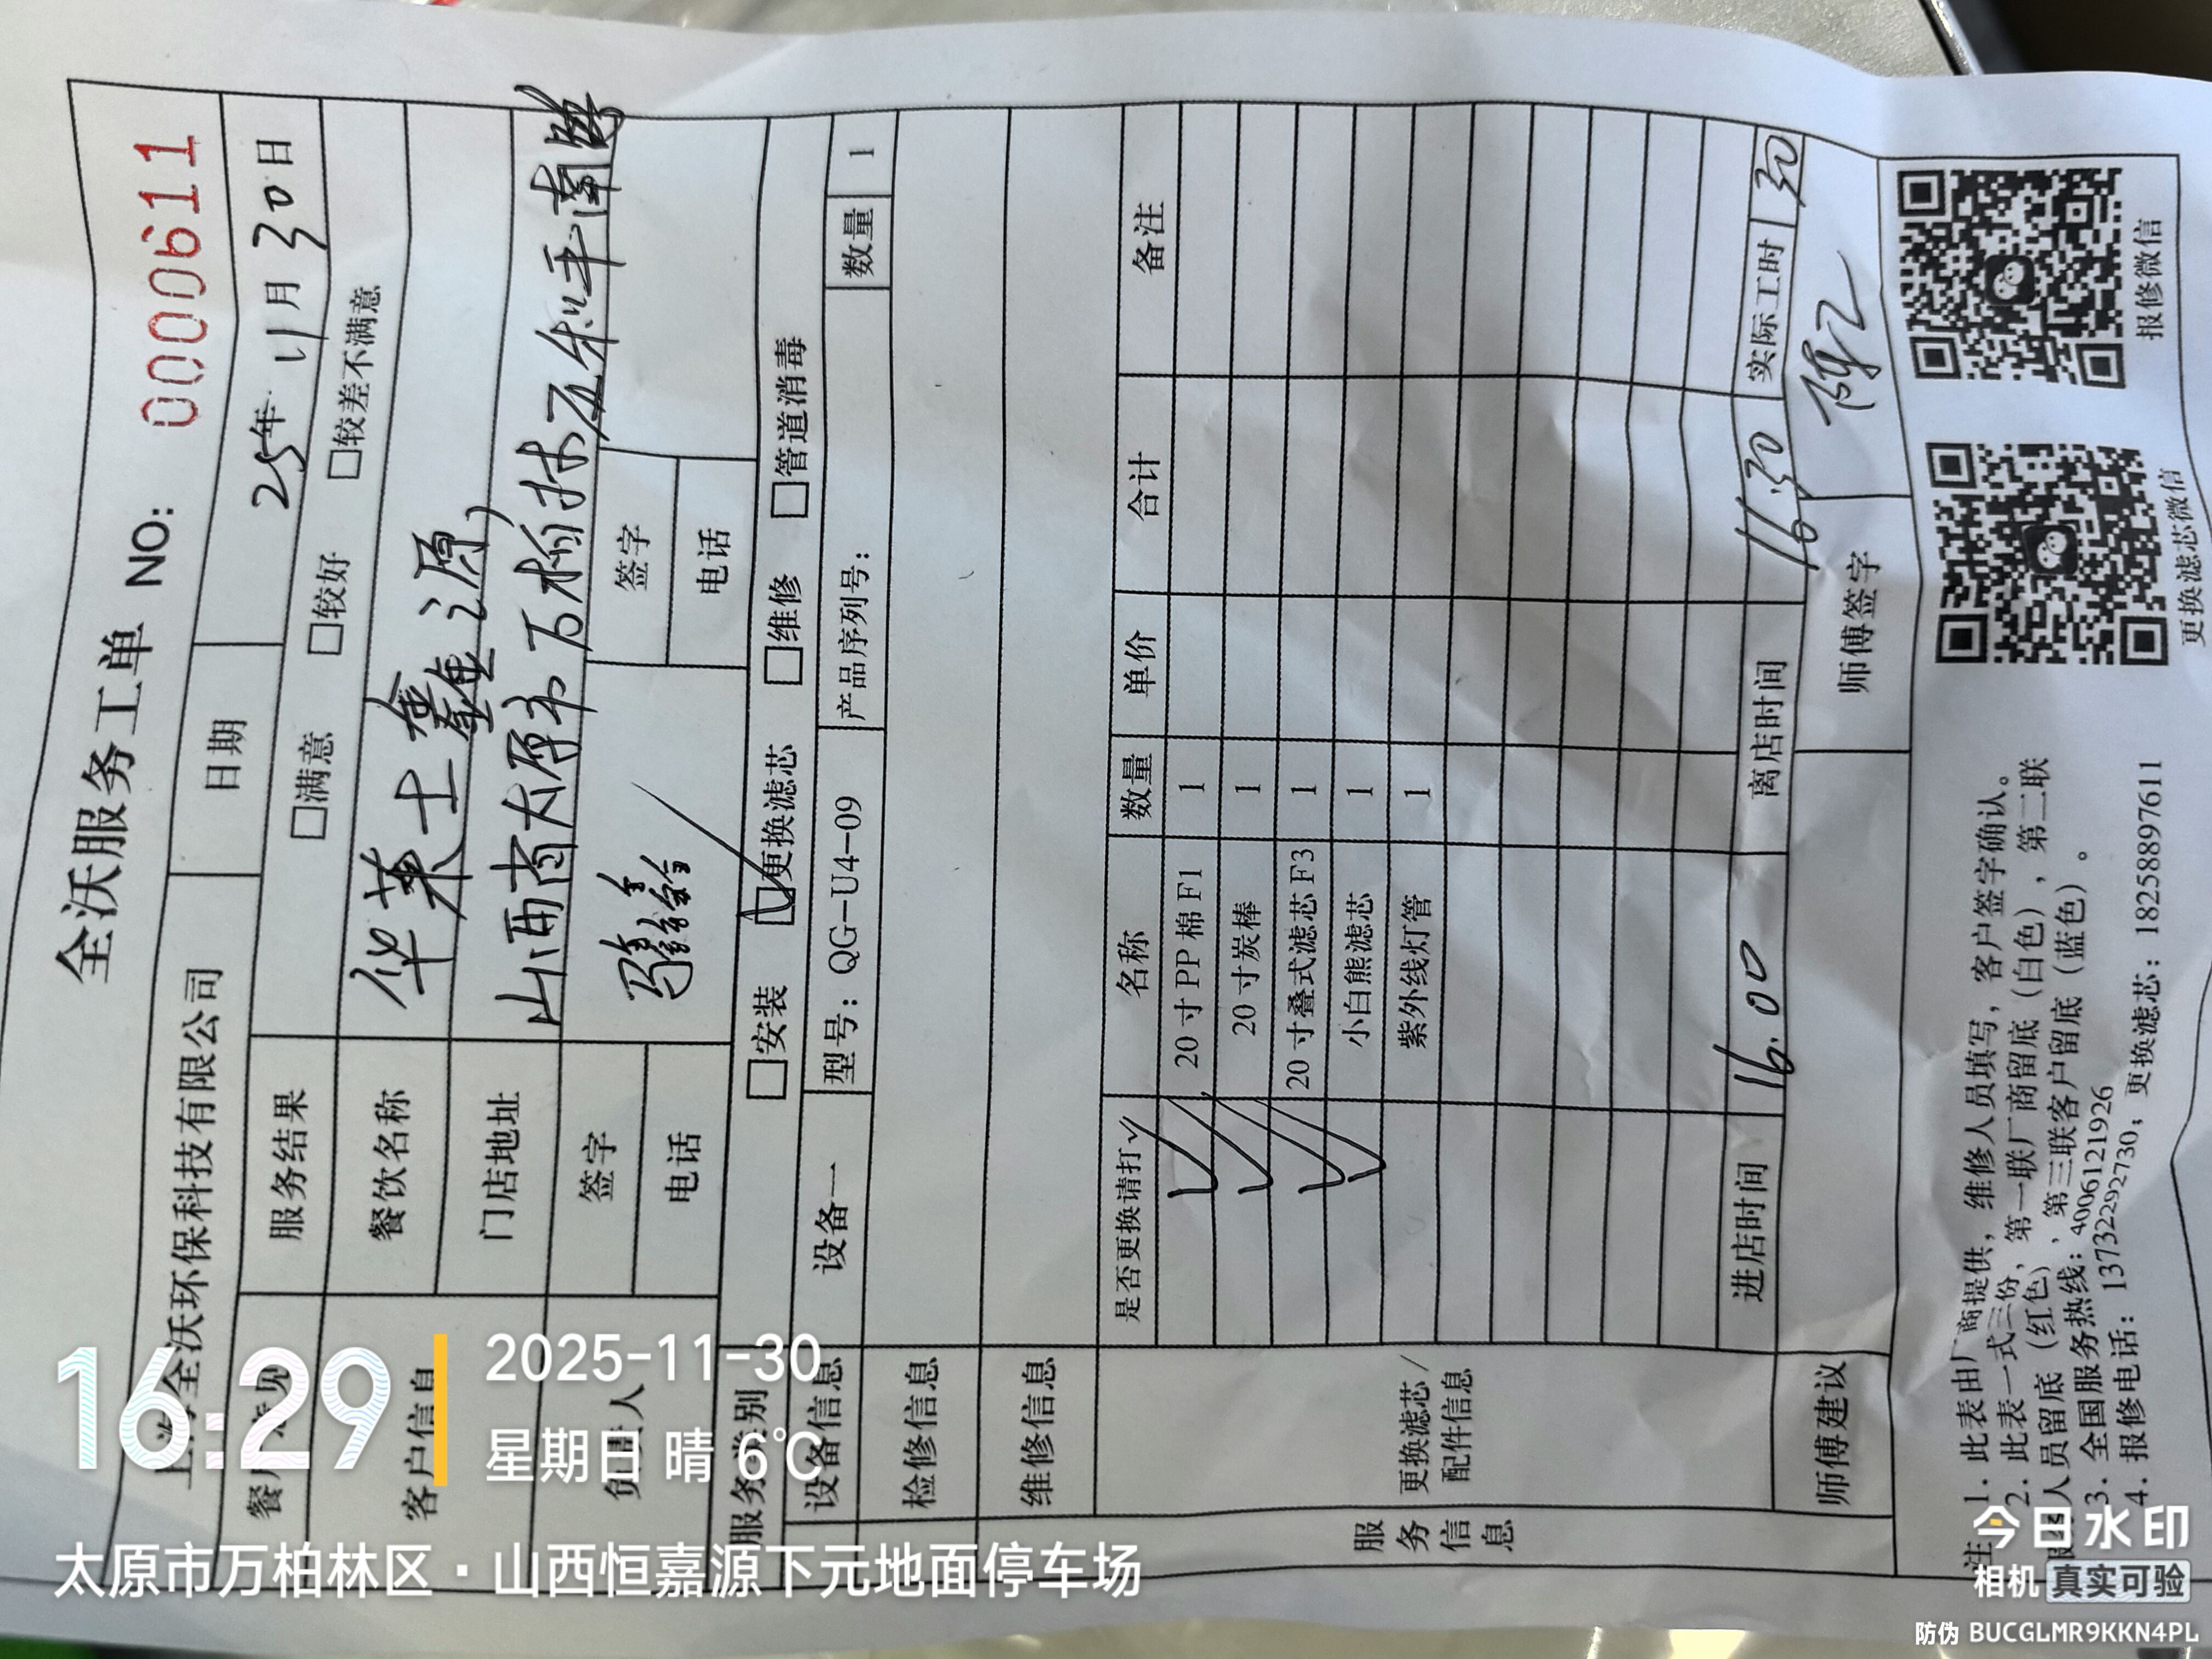 全沃服务工单 NO: 0000611
上海全沃环保科技有限公司 日期 25年 11月 30日
服务结果 □满意 □较好 □较差不满意
客户信息 餐饮名称 华莱士鑫源
门店地址 山西省太原市万柏林区
签字 签字
电话 电话
服务类别 □安装 ☑更换滤芯 □维修 □管道消毒
设备信息 设备一 型号：QG-U4-09 产品序列号： 数量 1
检修信息
维修信息
服务信息 更换滤芯/配件信息
是否更换请打√ 名称 数量 单价 合计 备注
√ 20寸PP棉F1 1
√ 20寸炭棒 1
√ 20寸叠式滤芯F3 1
√ 小白熊滤芯 1
紫外线灯管 1
进店时间 16:00 离店时间 16:30 实际工时 30
师傅建议 师傅签字
注：1. 此表由厂商提供，维修人员填写，客户签字确认。
2. 此表一式三份，第一联厂商留底（白色），第二联
人员留底（红色），第三联客户留底（蓝色）。
3. 全国服务热线：4006121926
4. 报修电话：13732292730；更换滤芯：18258897611
更换滤芯微信
报修微信
16:29
2025-11-30
星期日 晴 6℃
太原市万柏林区·山西恒嘉源下元地面停车场
今日水印
相机 真实可验
防伪 BUCGLMR9KKN4PL